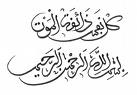 كل نفس ذائقة الموت
بسم الله الرحمن الرحيم